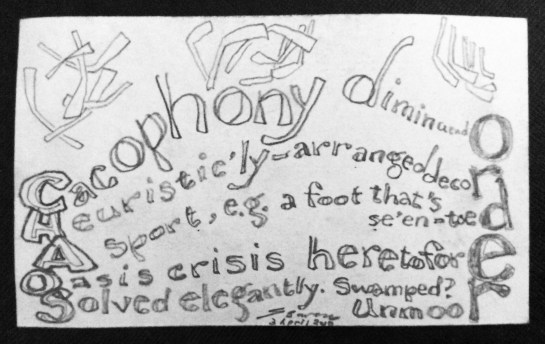 Cacophony diminuendo
Heuristic'ly-arranged decor
A sport, e.g. a foot that's
se'en-toed
Oasis crisis heretofore
Solved elegantly. Swamped?
Unmoor